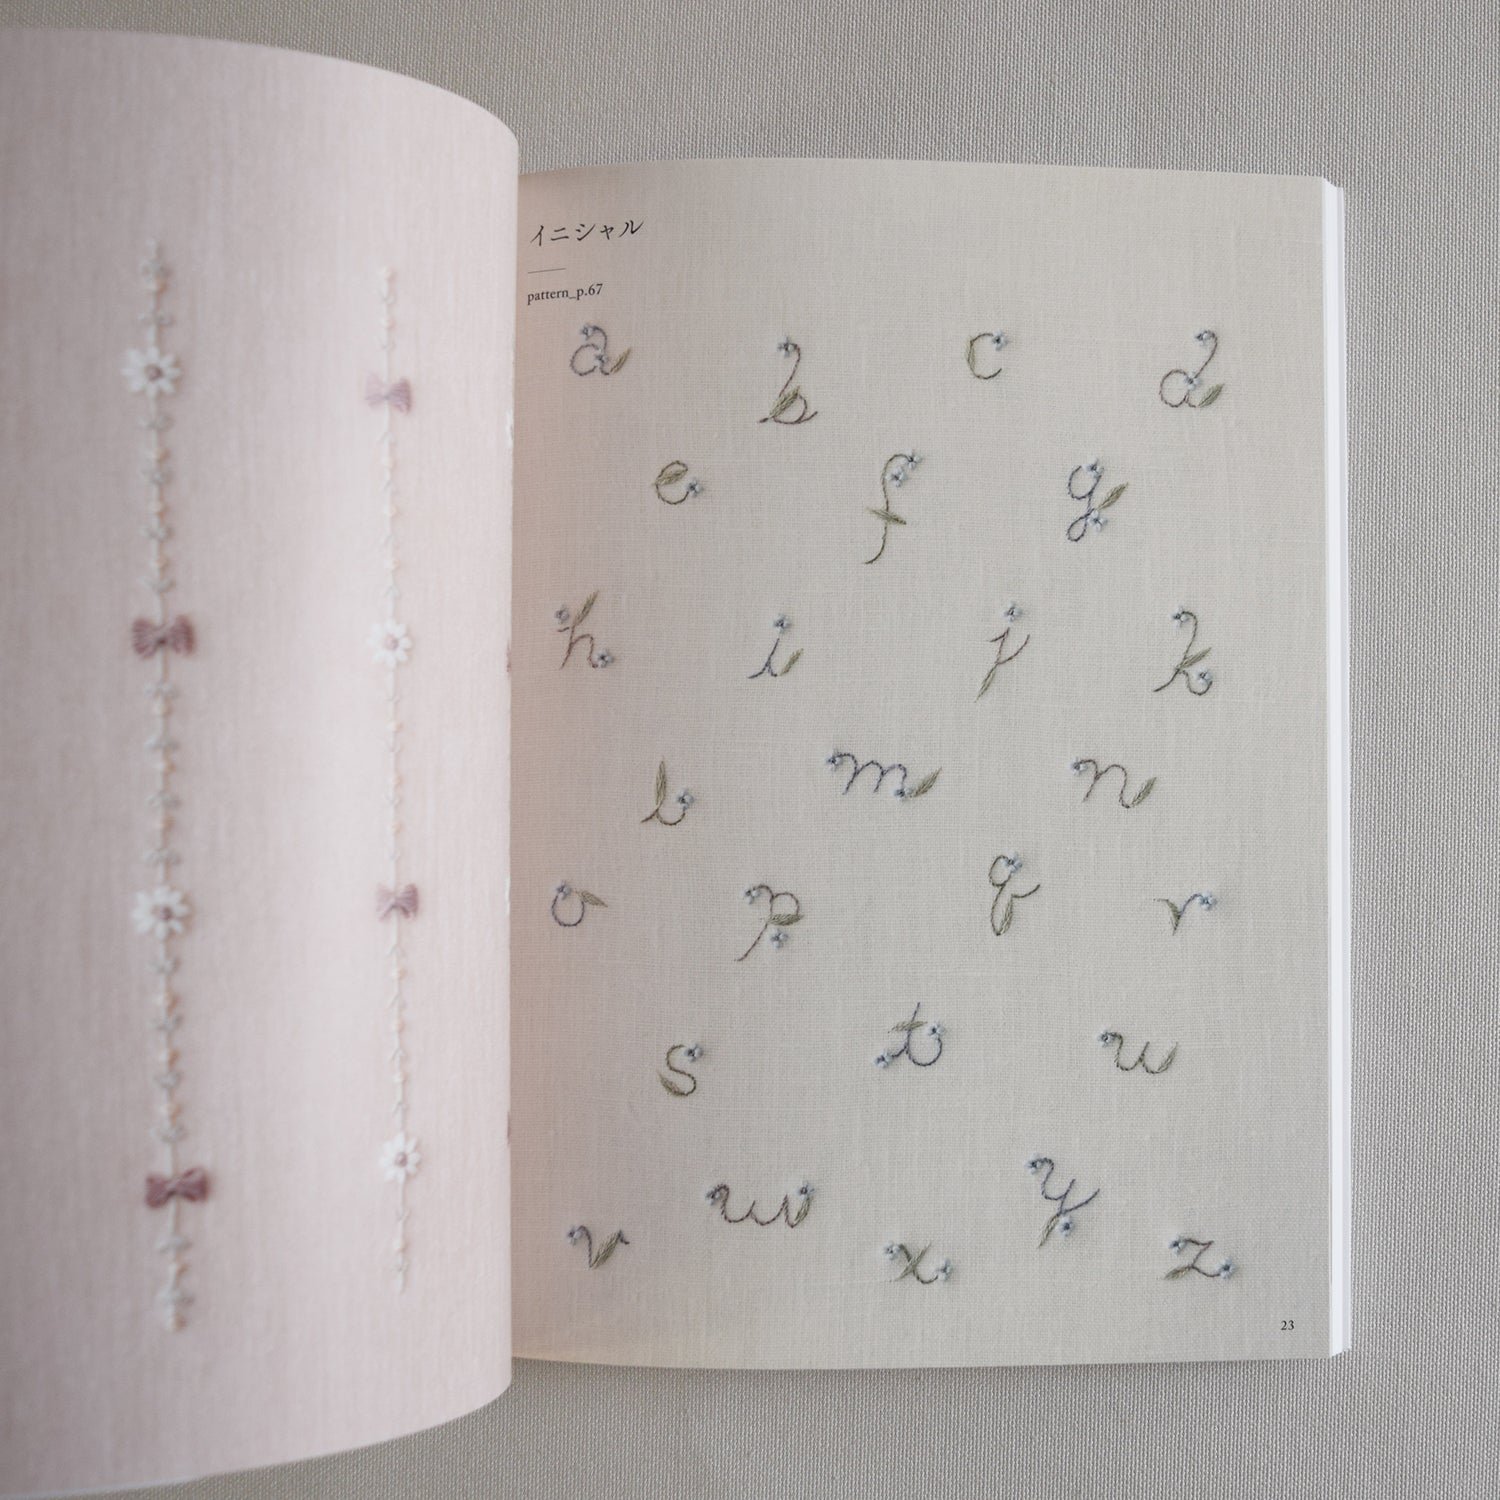 イニシャル
pattern_p.67
a b c d
e f g
h i j k
l m n
o p q r
s t u
v w x y z
23